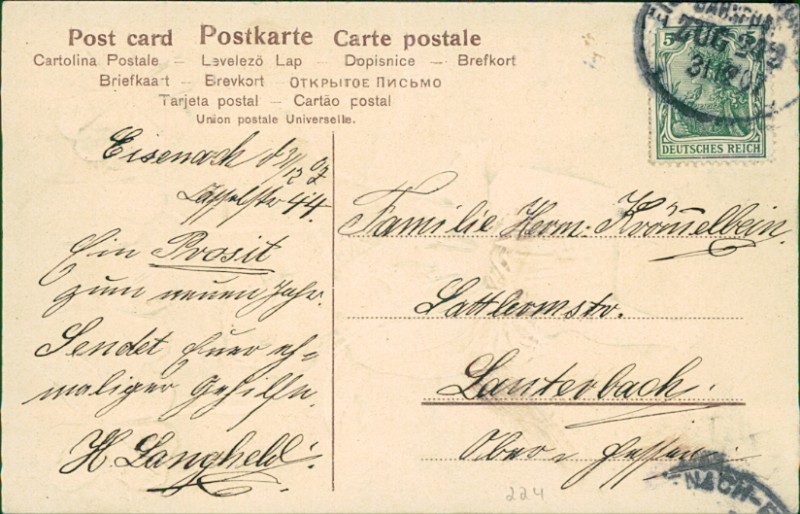 Post card Postkarte Carte postale
Cartolina Postale – Levelező Lap – Dopisnice – Brefkort
Briefkaart – Brevkort – Открытое Письмо
Tarjeta postal – Cartão postal
Union postale Universelle.
5 5
DEUTSCHES REICH
BAHNPOST
ZUG
Eisenach d. 31/12 07
44
Ein Prosit
zum neuen Jahr.
Sendet Euer eh=
maliger Gehilfe.
H Langheld.
Familie Herm. Krömelbein.
Lauterbach.
Ober Hessen
NACH-F
224